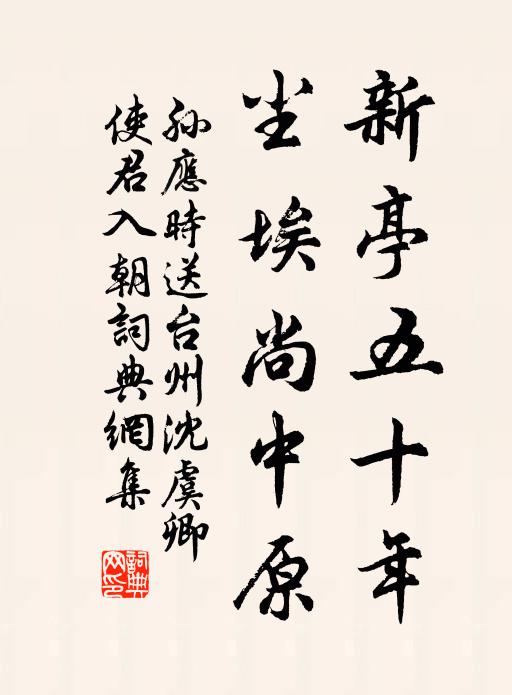 新亭五十年
尘埃尚中原
孙應時送台州沈虞卿
使君入朝詞典網集
詞典网印